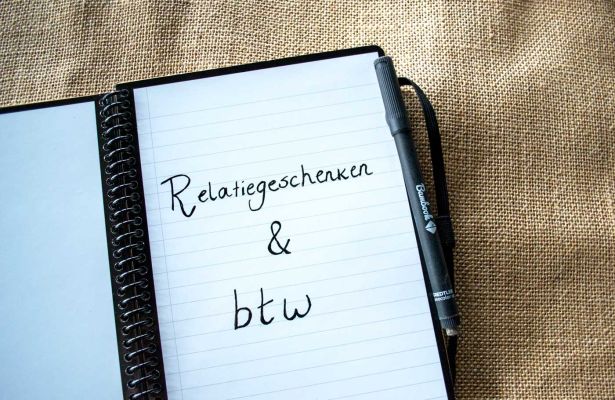 Relatiegeschenken
&
btw
Bambook
STAEDTLER